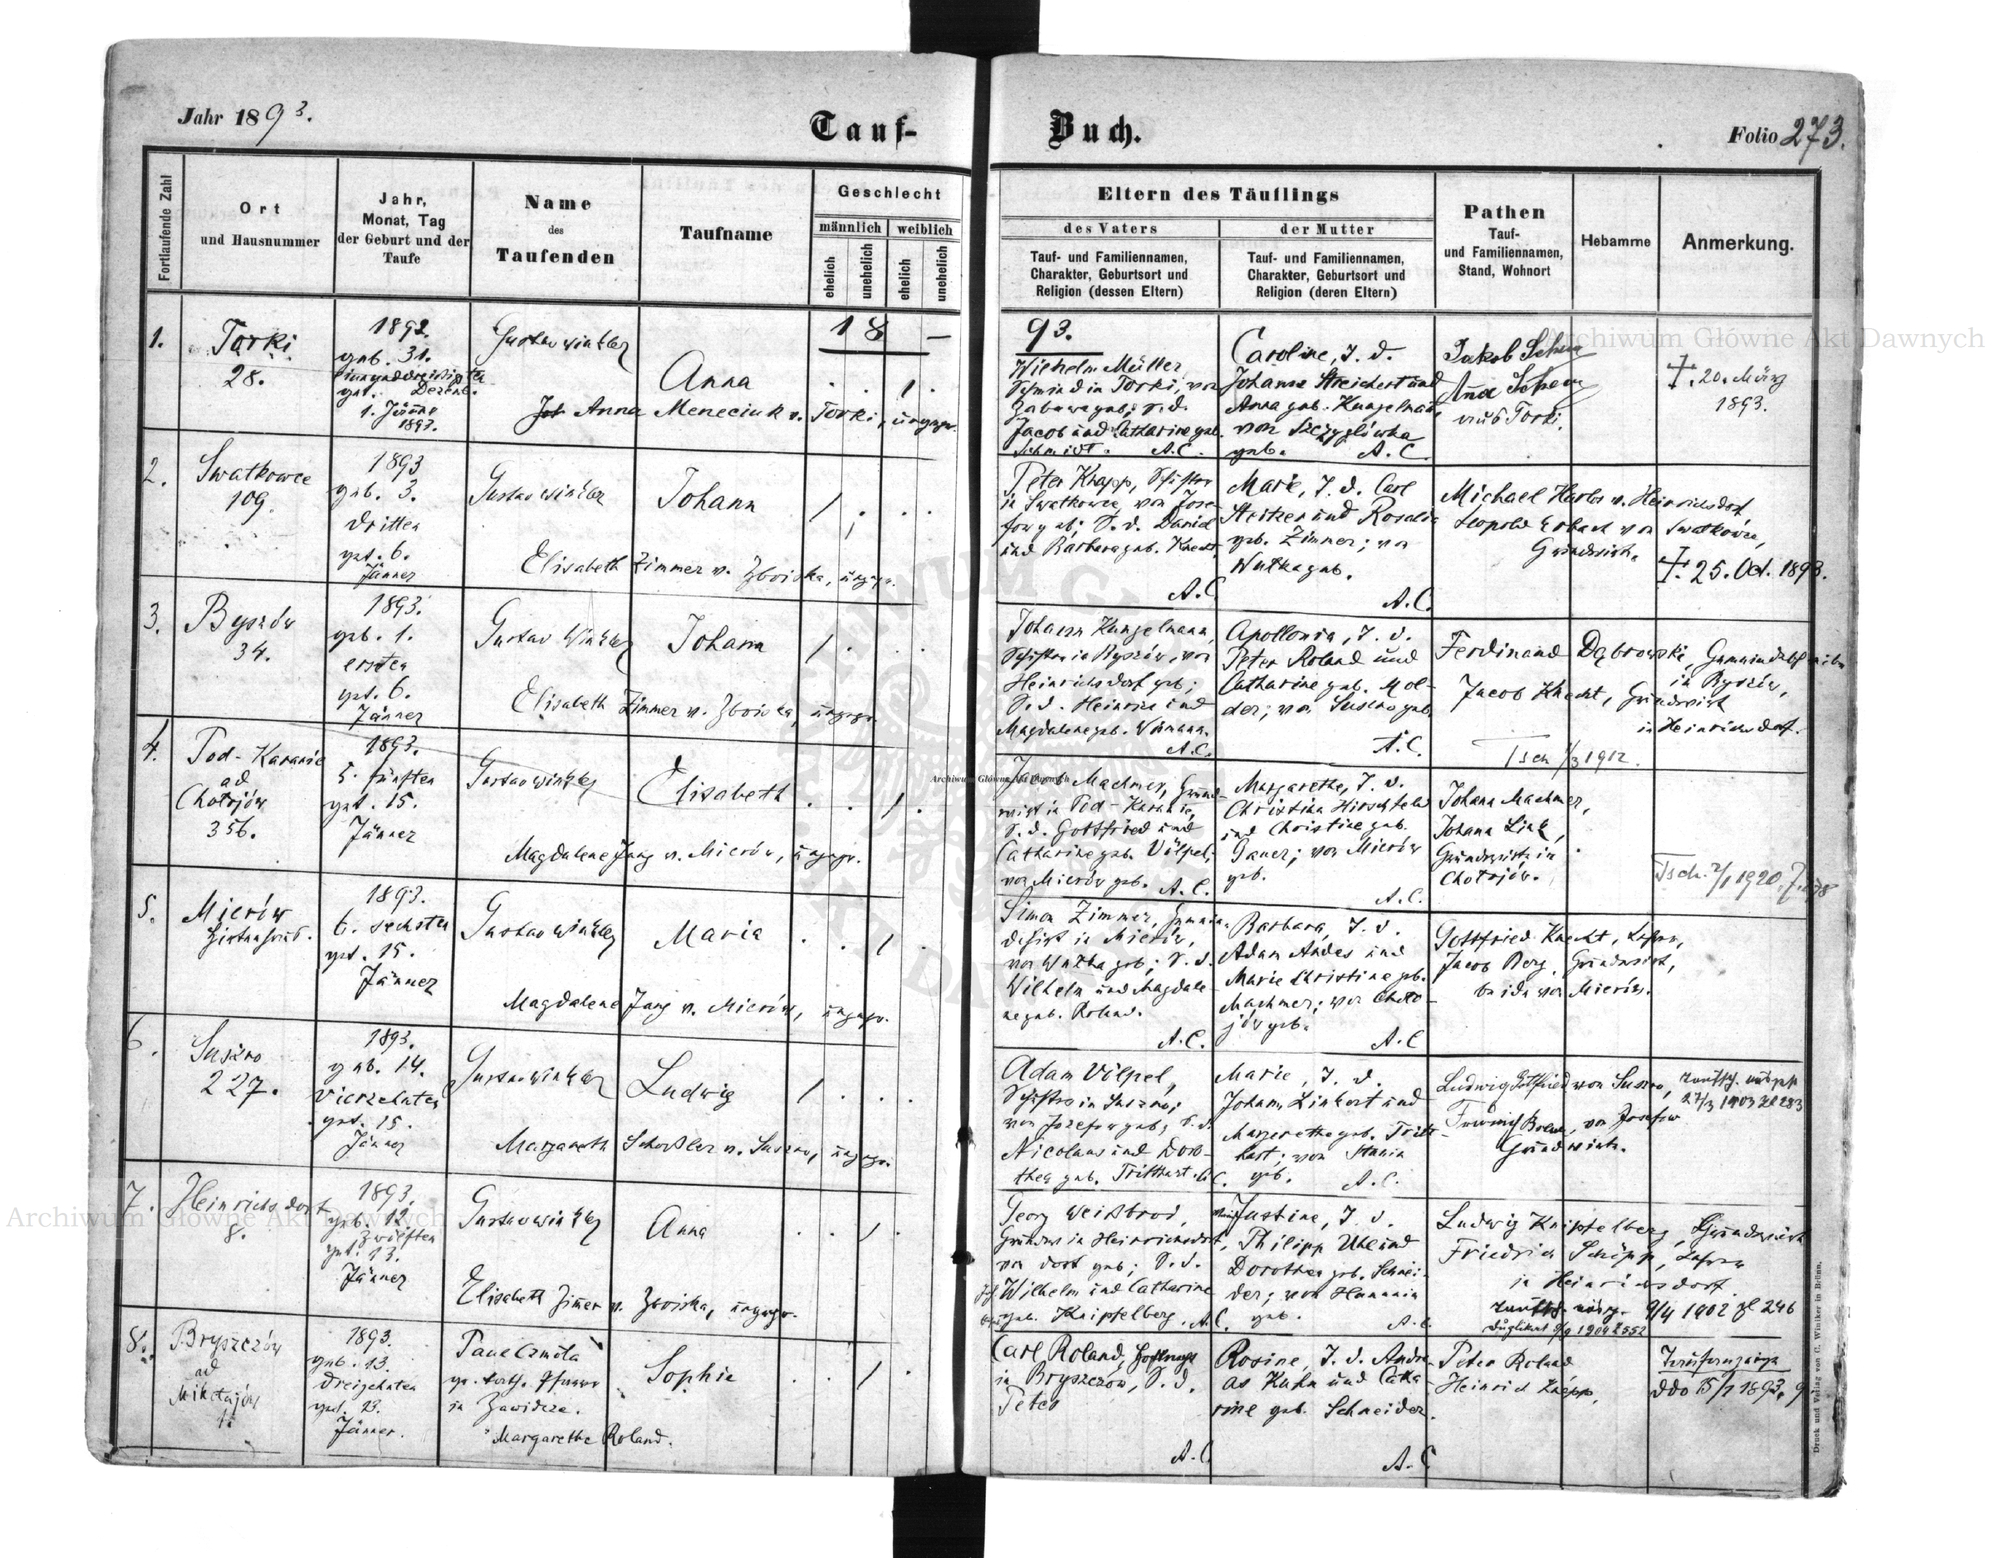 Jahr 1893.
Tauf-
Buch.
Folio 273.
Fortlaufende Zahl
Ort
und Hausnummer
Jahr,
Monat, Tag
der Geburt und der
Taufe
Name
des
Taufenden
Taufname
Geschlecht
männlich
weiblich
ehelich
unehelich
ehelich
unehelich
Eltern des Täuflings
des Vaters
Tauf- und Familiennamen,
Charakter, Geburtsort und
Religion (dessen Eltern)
der Mutter
Tauf- und Familiennamen,
Charakter, Geburtsort und
Religion (deren Eltern)
Pathen
Tauf-
und Familiennamen,
Stand, Wohnort
Hebamme
Anmerkung.
18
93.
1.
Torki
28.
1892.
geb. 31.
einunddreißigsten
get. Dezemb.
1. Jänner
1893.
Gustav Winkler
Anna
Anna Meneciuk v. Torki, ungepr.
Wilhelm Müller,
Schmied in Torki, von
Zabawa geb; S. d.
Jacob und Catharine geb.
Schmidt. A.C.
Caroline, T. d.
Johann Streichert und
Anna geb. Kungelmann,
von Sczyglówka
geb. A.C.
Jakob
Anna
aus Torki.
†. 20. März
1893.
2.
Swatkowce
109.
1893
geb. 3.
dritten
get. 6.
Jänner
Gustav Winkler
Johann
Elisabeth Zimmer v. Zboiska, ungepr.
Peter Knapp,
in Swatkowce, von Jose-
fow geb; S. d. Daniel
und Barbara geb. Knecht.
A.C.
Marie, T. d. Carl
Steitzer und Rosalia
geb. Zimmer; von
Wutka geb.
A.C.
Michael Harlos v. Heinrichsdorf
Leopold Erbach von Swatkowce,
Grundwirth.
†. 25. Oct. 1893.
3.
Byszów
34.
1893.
geb. 1.
ersten
get. 6.
Jänner
Gustav Winkler
Johann
Elisabeth Zimmer v. Zboiska, ungepr.
Johann Kungelmann,
in Byszów, von
Heinrichsdorf geb;
S. d. Heinrich und
Magdalene geb.
A.C.
Apollonia, T. d.
Peter Roland und
Catharine geb. Mol-
der; von Suszno geb.
A.C.
Ferdinand Dąbrowski,
in Byszów,
Jacob Knecht, Grundwirth
in Heinrichsdorf.
Tsch 1/3 1912.
4.
Pod-Kananie
ad
Chołojów
356.
1893.
5. fünften
get. 15.
Jänner
Gustav Winkler
Elisabeth
Magdalene Jung v. Mierów, ungepr.
Jacob Machmer, Grund-
wirt in Pod-Kananie,
S. d. Gottfried und
Catharine geb. Völpel,
von Mierów geb. A.C.
Margarethe, T. d.
Christian Hirschfeld
und Christine geb.
Ganer; von Mierów
geb.
A.C.
Johann Machmer,
Johann Link,
Grundwirte in
Chołojów.
Tsch. 2/1 1920
5.
Mierów
Hirtenhaus.
1893.
6. sechsten
get. 15.
Jänner
Gustav Winkler
Maria
Magdalene Jung v. Mierów, ungepr.
Simon Zimmer, Gemein-
dehirt in Mierów,
von Wutka geb; S. d.
Wilhelm und Magdale-
ne geb. Roland.
A.C.
Barbara, T. d.
Adam Andes und
Marie Christine geb.
Machmer; von Choło-
jów geb.
A.C
Gottfried Knecht, Lehrer,
Jacob Berg, Grundwirt,
beide von Mierów.
6.
Suszno
227.
1893.
geb. 14.
vierzehnten
get. 15.
Jänner
Gustav Winkler
Ludwig
Margareth Schoßler v. Suszno, ungepr.
Adam Völpel,
in Suszno;
von Jozefow geb; S. d.
Nicolaus und Doro-
thea geb. Tritthart. A.C.
Marie, T. d.
Johann Linkert und
Margarethe geb. Tritt-
hart; von Stanin
geb. A.C.
Ludwig Gottfried von Suszno,
von Josefow
Grundwirte.
27/3 1903 Zl 283
7.
Heinrichsdorf
8.
1893.
geb. 12.
zwölften
get. 13.
Jänner
Gustav Winkler
Anna
Elisabeth Zimer v. Zboiska, ungepr.
Georg Weißbrod,
Grundw. in Heinrichsdorf,
von dort geb; S. d.
Wilhelm und Catharine
geb. Knipfelberg. A.C.
Justine, T. d.
Philipp Uhl und
Dorothea geb. Schnei-
der; von Hanunin
geb. A.C.
Ludwig Knipfelberg, Grundwirt
Friedrich Schöpp, Lehrer
in Heinrichsdorf.
9/4 1902 Zl 246
Duplikat 9/9 1909 Z 552
8.
Bryszczów
ad
Mikołajów
1893.
geb. 13.
dreizehnten
get. 13.
Jänner.
Paul Czmola
ev. luth. Pfarrer
in Zawidcze.
Sophie
Margarethe Roland.
Carl Roland,
in Bryszczów, S. d.
Peter
A.C.
Rosine, T. d. Andre-
as Kuhn und Catha-
rine geb. Schneider.
A.C
Peter Roland
Heinrich Knapp,
ddo 15/1 1893. 9
Druck und Verlag von C. Winiker in Brünn.
Archiwum Główne Akt Dawnych
Archiwum Główne Akt Dawnych
Archiwum Główne Akt Dawnych